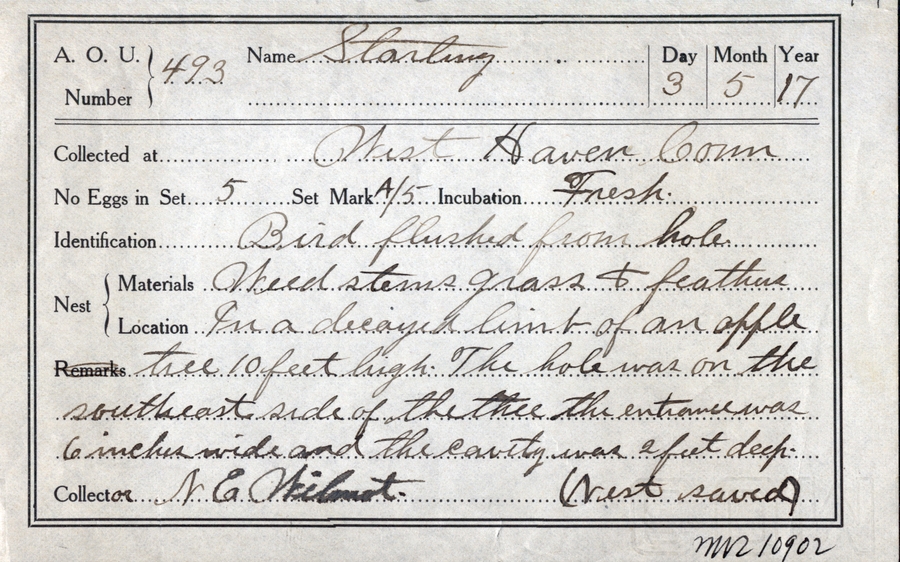 A. O. U. Number 493 Name Starling Day 3 Month 5 Year 17
Collected at West Haven Conn
No Eggs in Set 5 Set Mark A/5 Incubation Fresh.
Identification Bird flushed from hole.
Nest Materials Weed stems grass & feathers
Location In a decayed limb of an apple
Remarks tree 10 feet high. The hole was on the
southeast side of the thee the entrance was
6 inches wide and the cavity was 2 feet deep.
Collector N. E. Wilmot. (Nest saved)
MVZ 10902